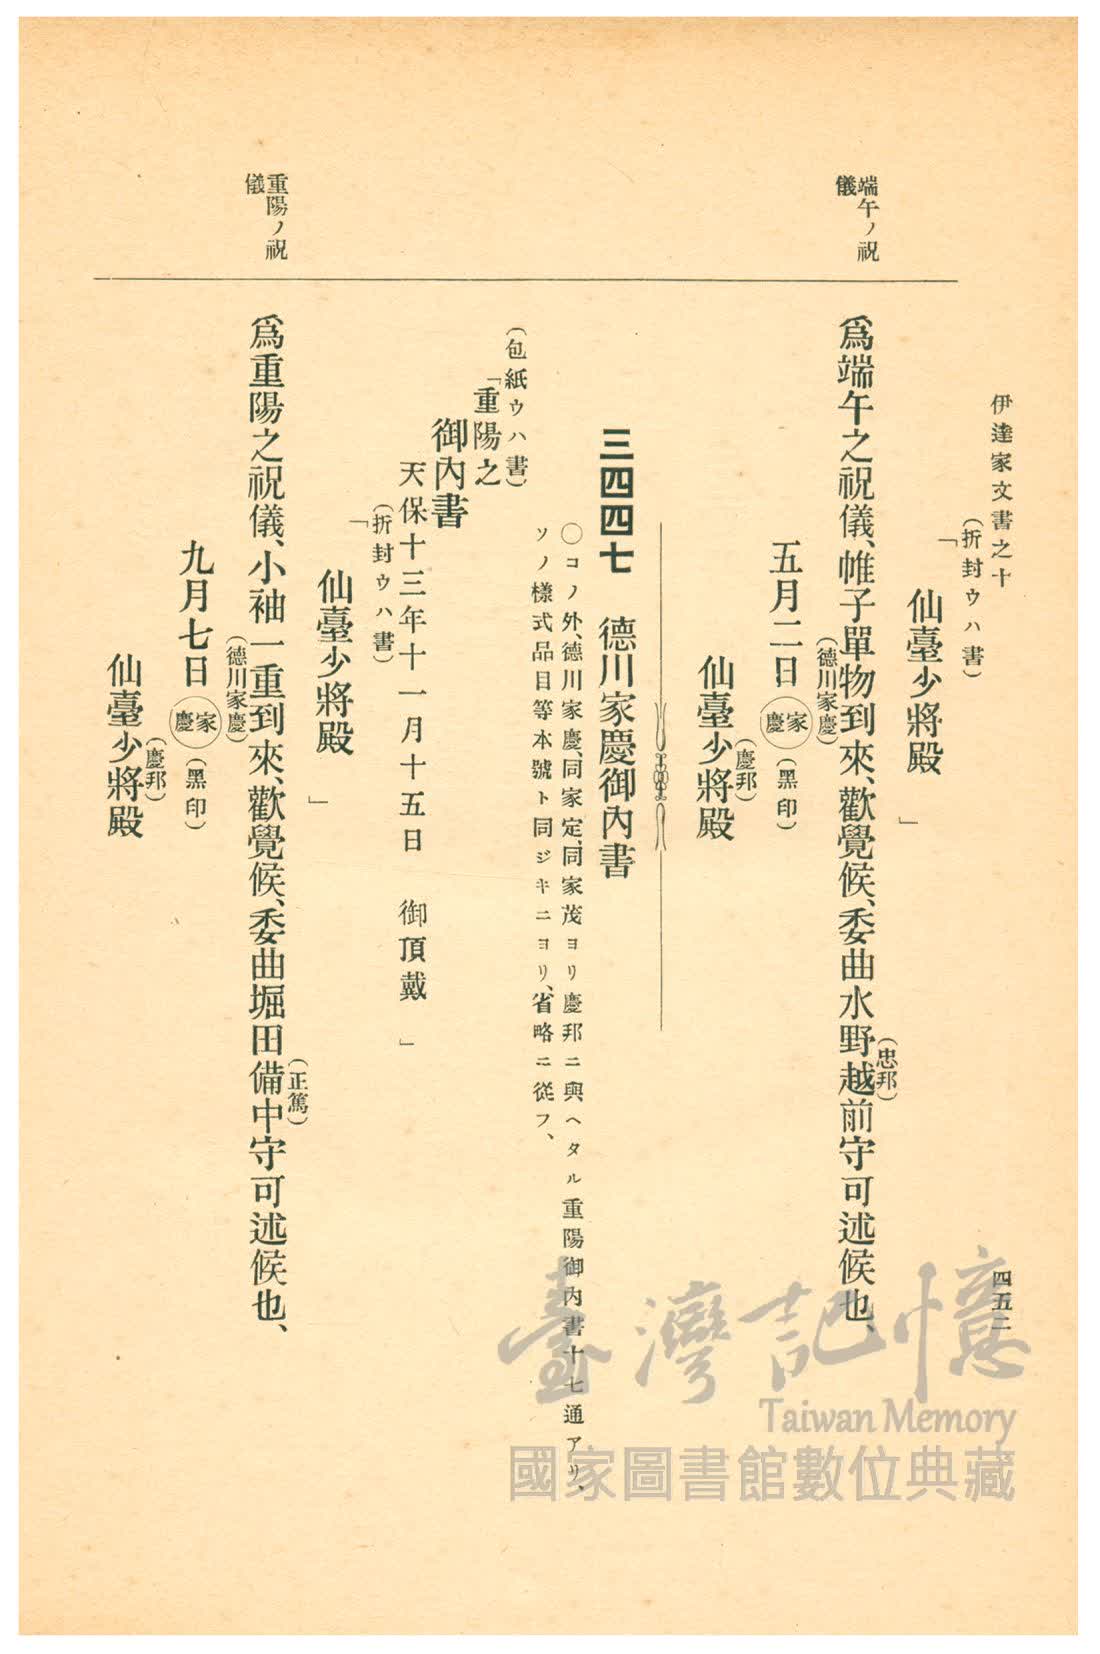 伊達家文書之十
四五二
端午ノ祝
儀
(折封ウハ書)
「
仙臺少將殿
」
爲端午之祝儀、帷子單物到來、歡覺候、委曲水野越前守可述候也、
(忠邦)
(德川家慶)
五月二日
家慶
(黑印)
(慶邦)
仙臺少將殿
三四四七 德川家慶御內書
〇コノ外、德川家慶、同家定、同家茂ヨリ慶邦ニ與ヘタル重陽御內書十七通アリ、
ソノ樣式品目等本號ト同ジキニヨリ、省略ニ從フ、
(包紙ウハ書)
「重陽之
御內書
天保十三年十一月十五日 御頂戴 」
(折封ウハ書)
「
仙臺少將殿
」
重陽ノ祝
儀
爲重陽之祝儀、小袖一重到來、歡覺候、委曲堀田備中守可述候也、
(正篤)
(德川家慶)
九月七日
家慶
(黑印)
(慶邦)
仙臺少將殿
臺灣記憶
Taiwan Memory
國家圖書館數位典藏